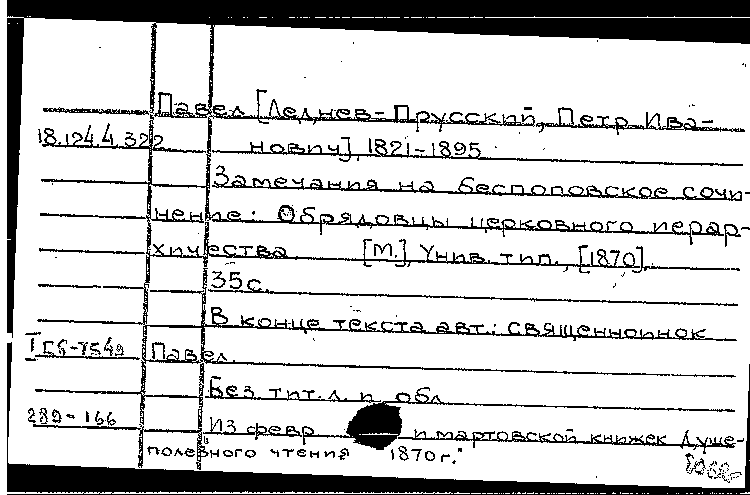 Павел [Леднев-Прусский, Петр Ива-
18.124.4.322 нович], 1821-1895
Замечания на беспоповское сочи-
нение: Обрядовцы церковного иерар-
хичества. [М.], Унив. тип., [1870].
35с.
В конце текста авт.: священноинок
Павел.
Без тит. л. и обл.
289-166 Из февр. и мартовской книжек Душе-
полезного чтения 1870г."